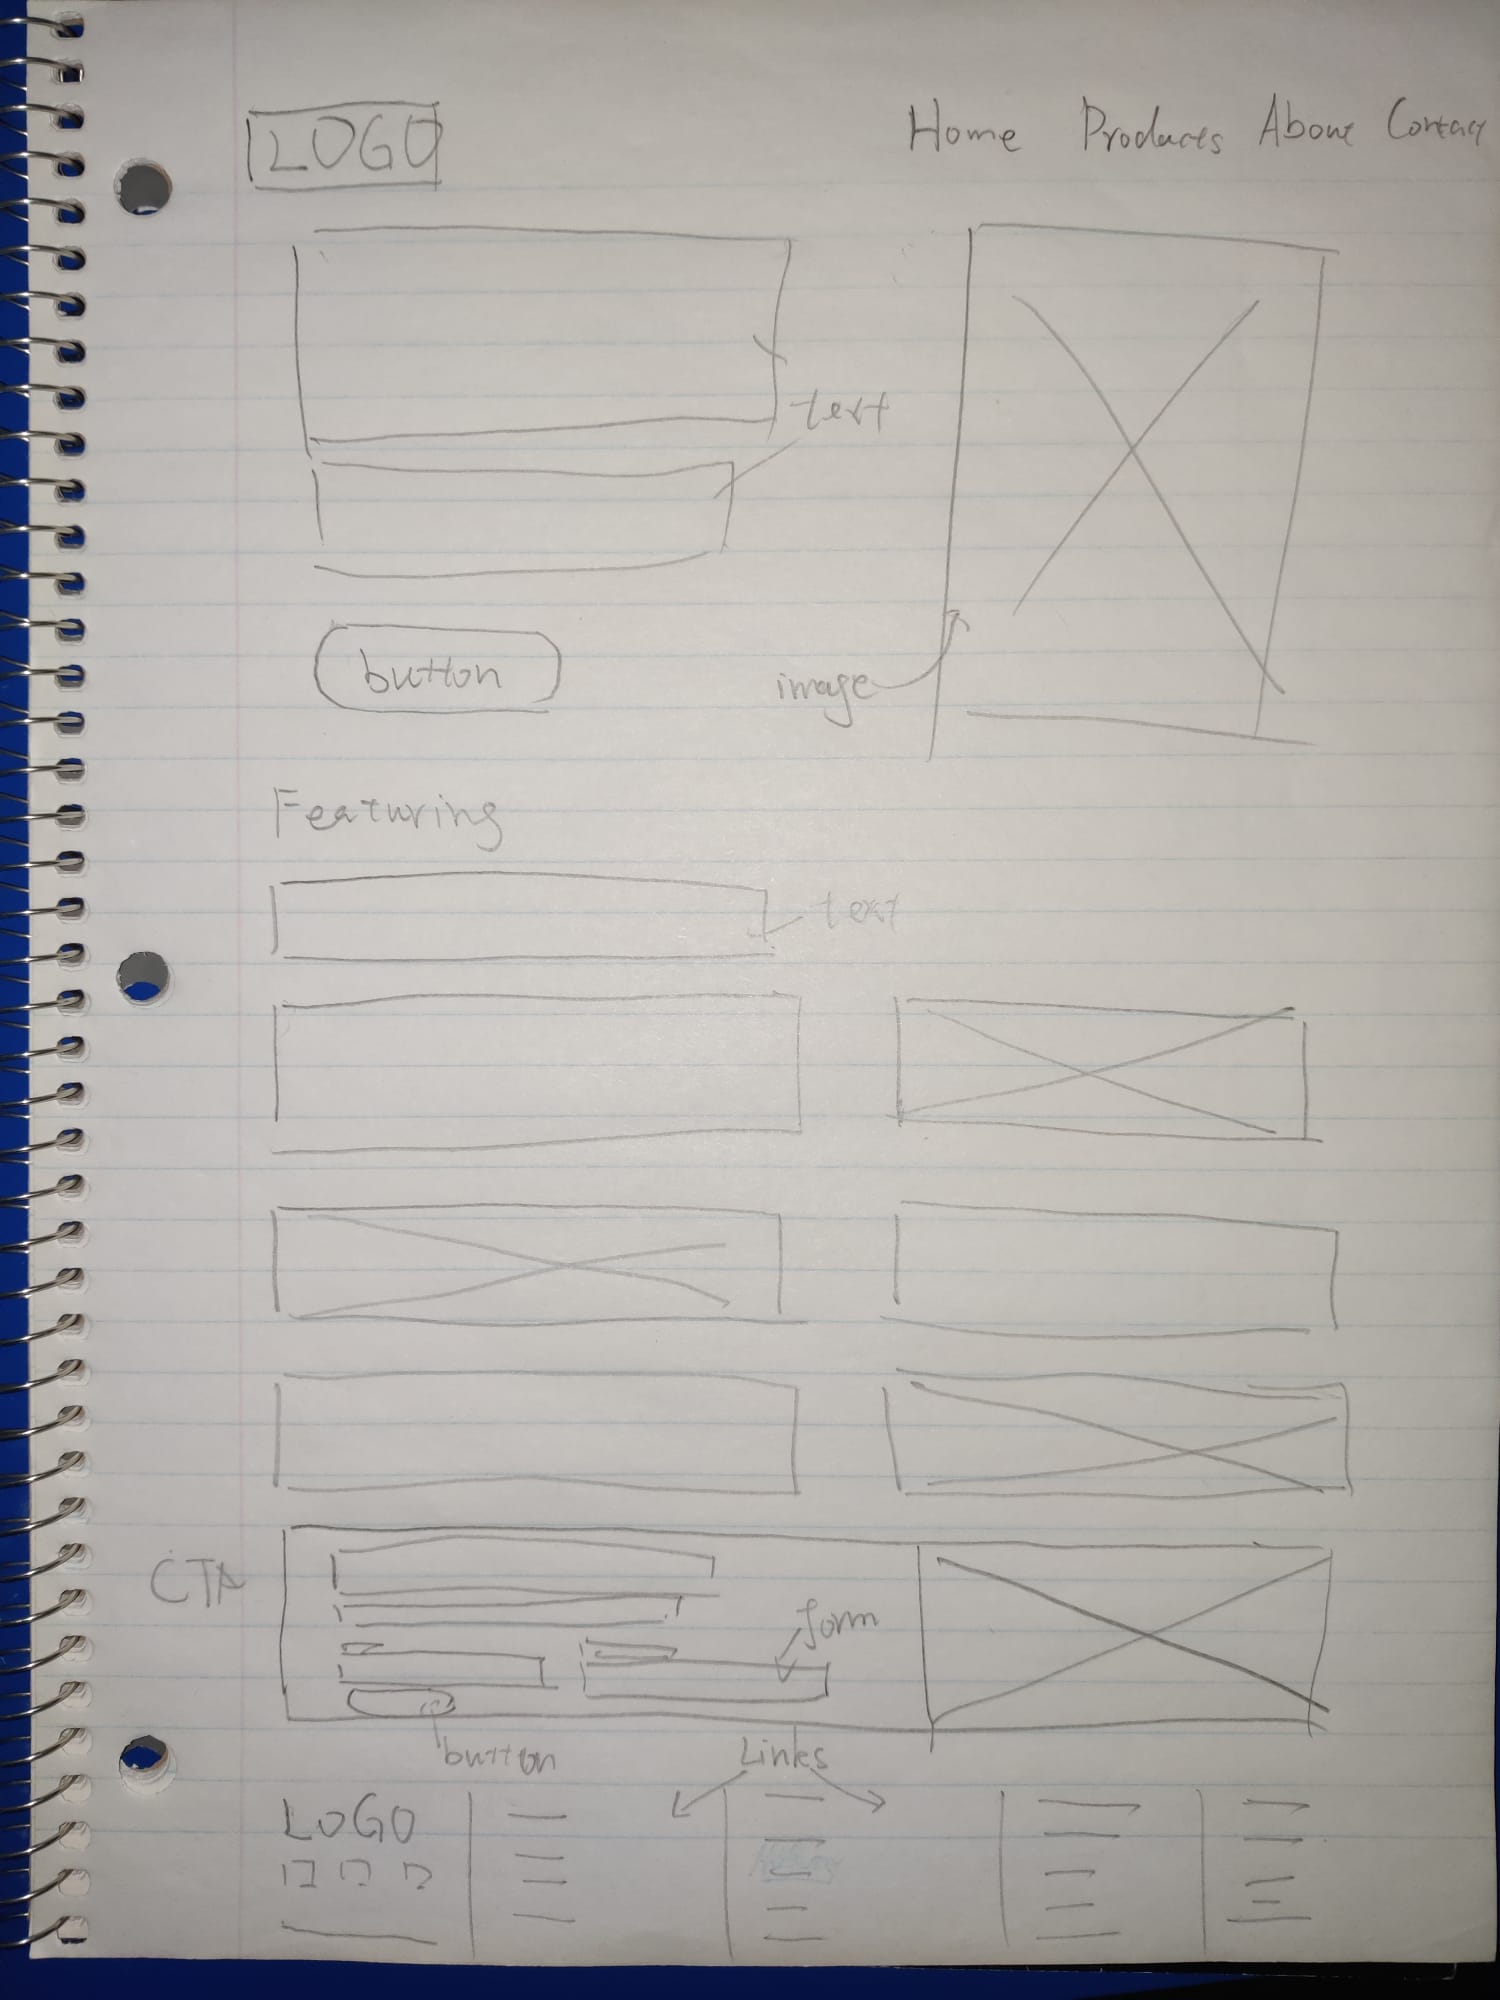 LOGO
Home Products About Contact
text
button
image
Featuring
text
CTA
form
button
Links
LOGO